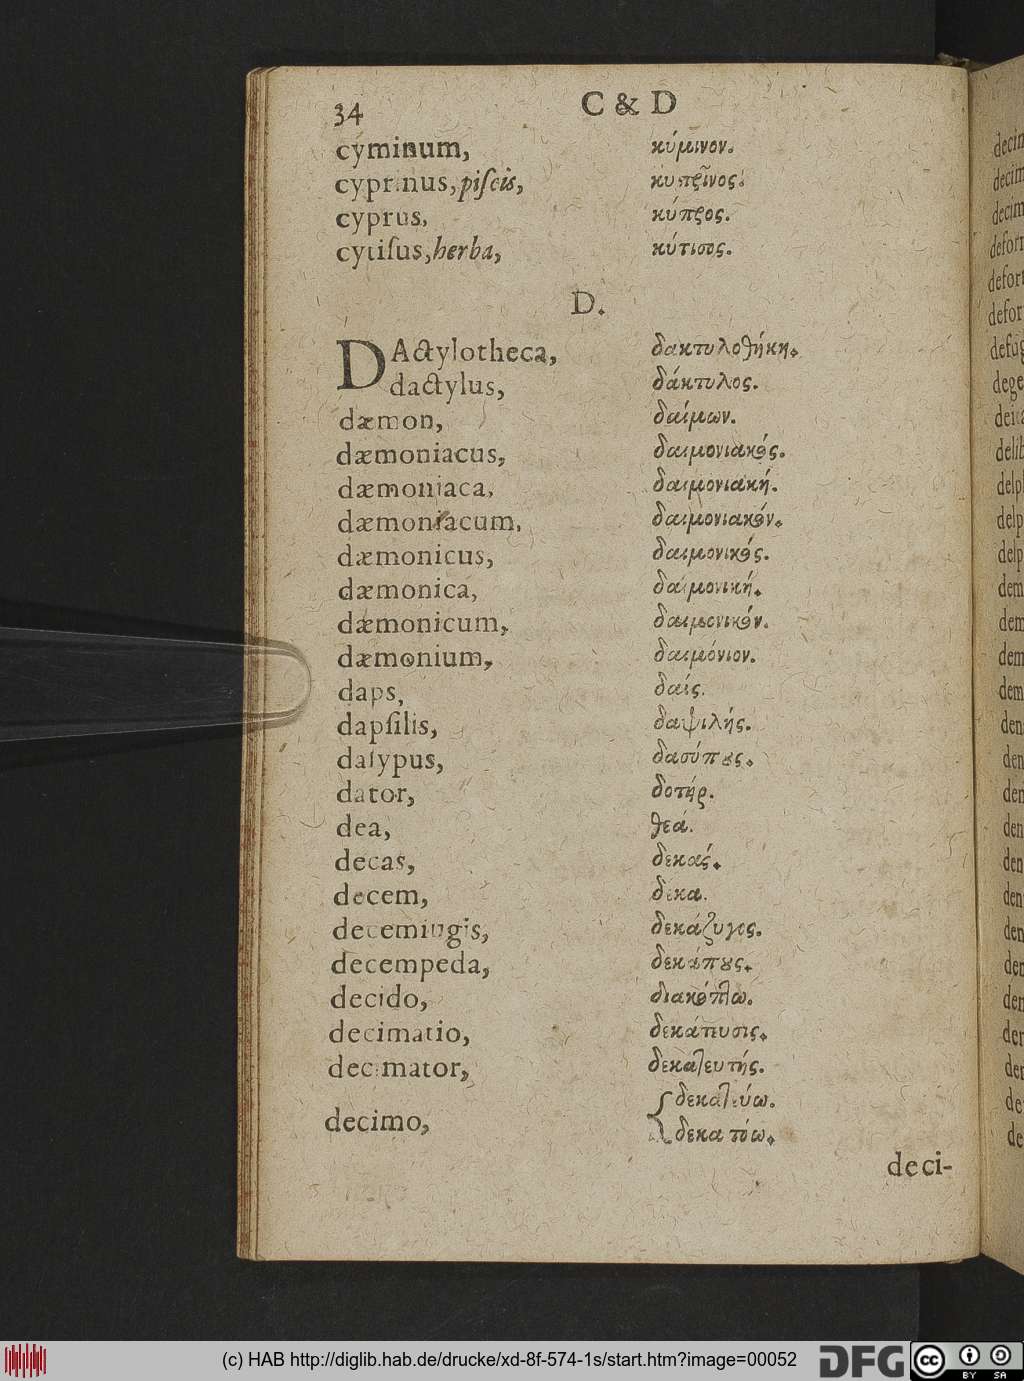 34 C & D
cyminum, κύμινον.
cyprinus, piſcis, κυπρῖνος.
cyprus, κύπρος.
cytiſus, herba, κύτισος.
D.
DActylotheca, δακτυλοθήκη.
dactylus, δάκτυλος.
dæmon, δαίμων.
dæmoniacus, δαιμονιακός.
dæmoniaca, δαιμονιακή.
dæmoniacum, δαιμονιακόν.
dæmonicus, δαιμονικός.
dæmonica, δαιμονική.
dæmonicum, δαιμονικόν.
dæmonium, δαιμόνιον.
daps, δαίς.
dapſilis, δαψιλής.
daſypus, δασύπους.
dator, δοτήρ.
dea, θεά.
decas, δεκάς.
decem, δεκα.
decemiugis, δεκάζυγος.
decempeda, δεκάπους.
decido, διακόπτω.
decimatio, δεκάτευσις.
decimator, δεκατευτής.
decimo, δεκατεύω.
δεκατόω.
deci-
decim
decim
decim
defor
defor
defor
defug
dege
delib
delp
delp
delp
dem
dem
dem
dem
den
den
den
den
den
den
den
den
den
der
der
de
de
(c) HAB http://diglib.hab.de/drucke/xd-8f-574-1s/start.htm?image=00052 DFG cc BY SA